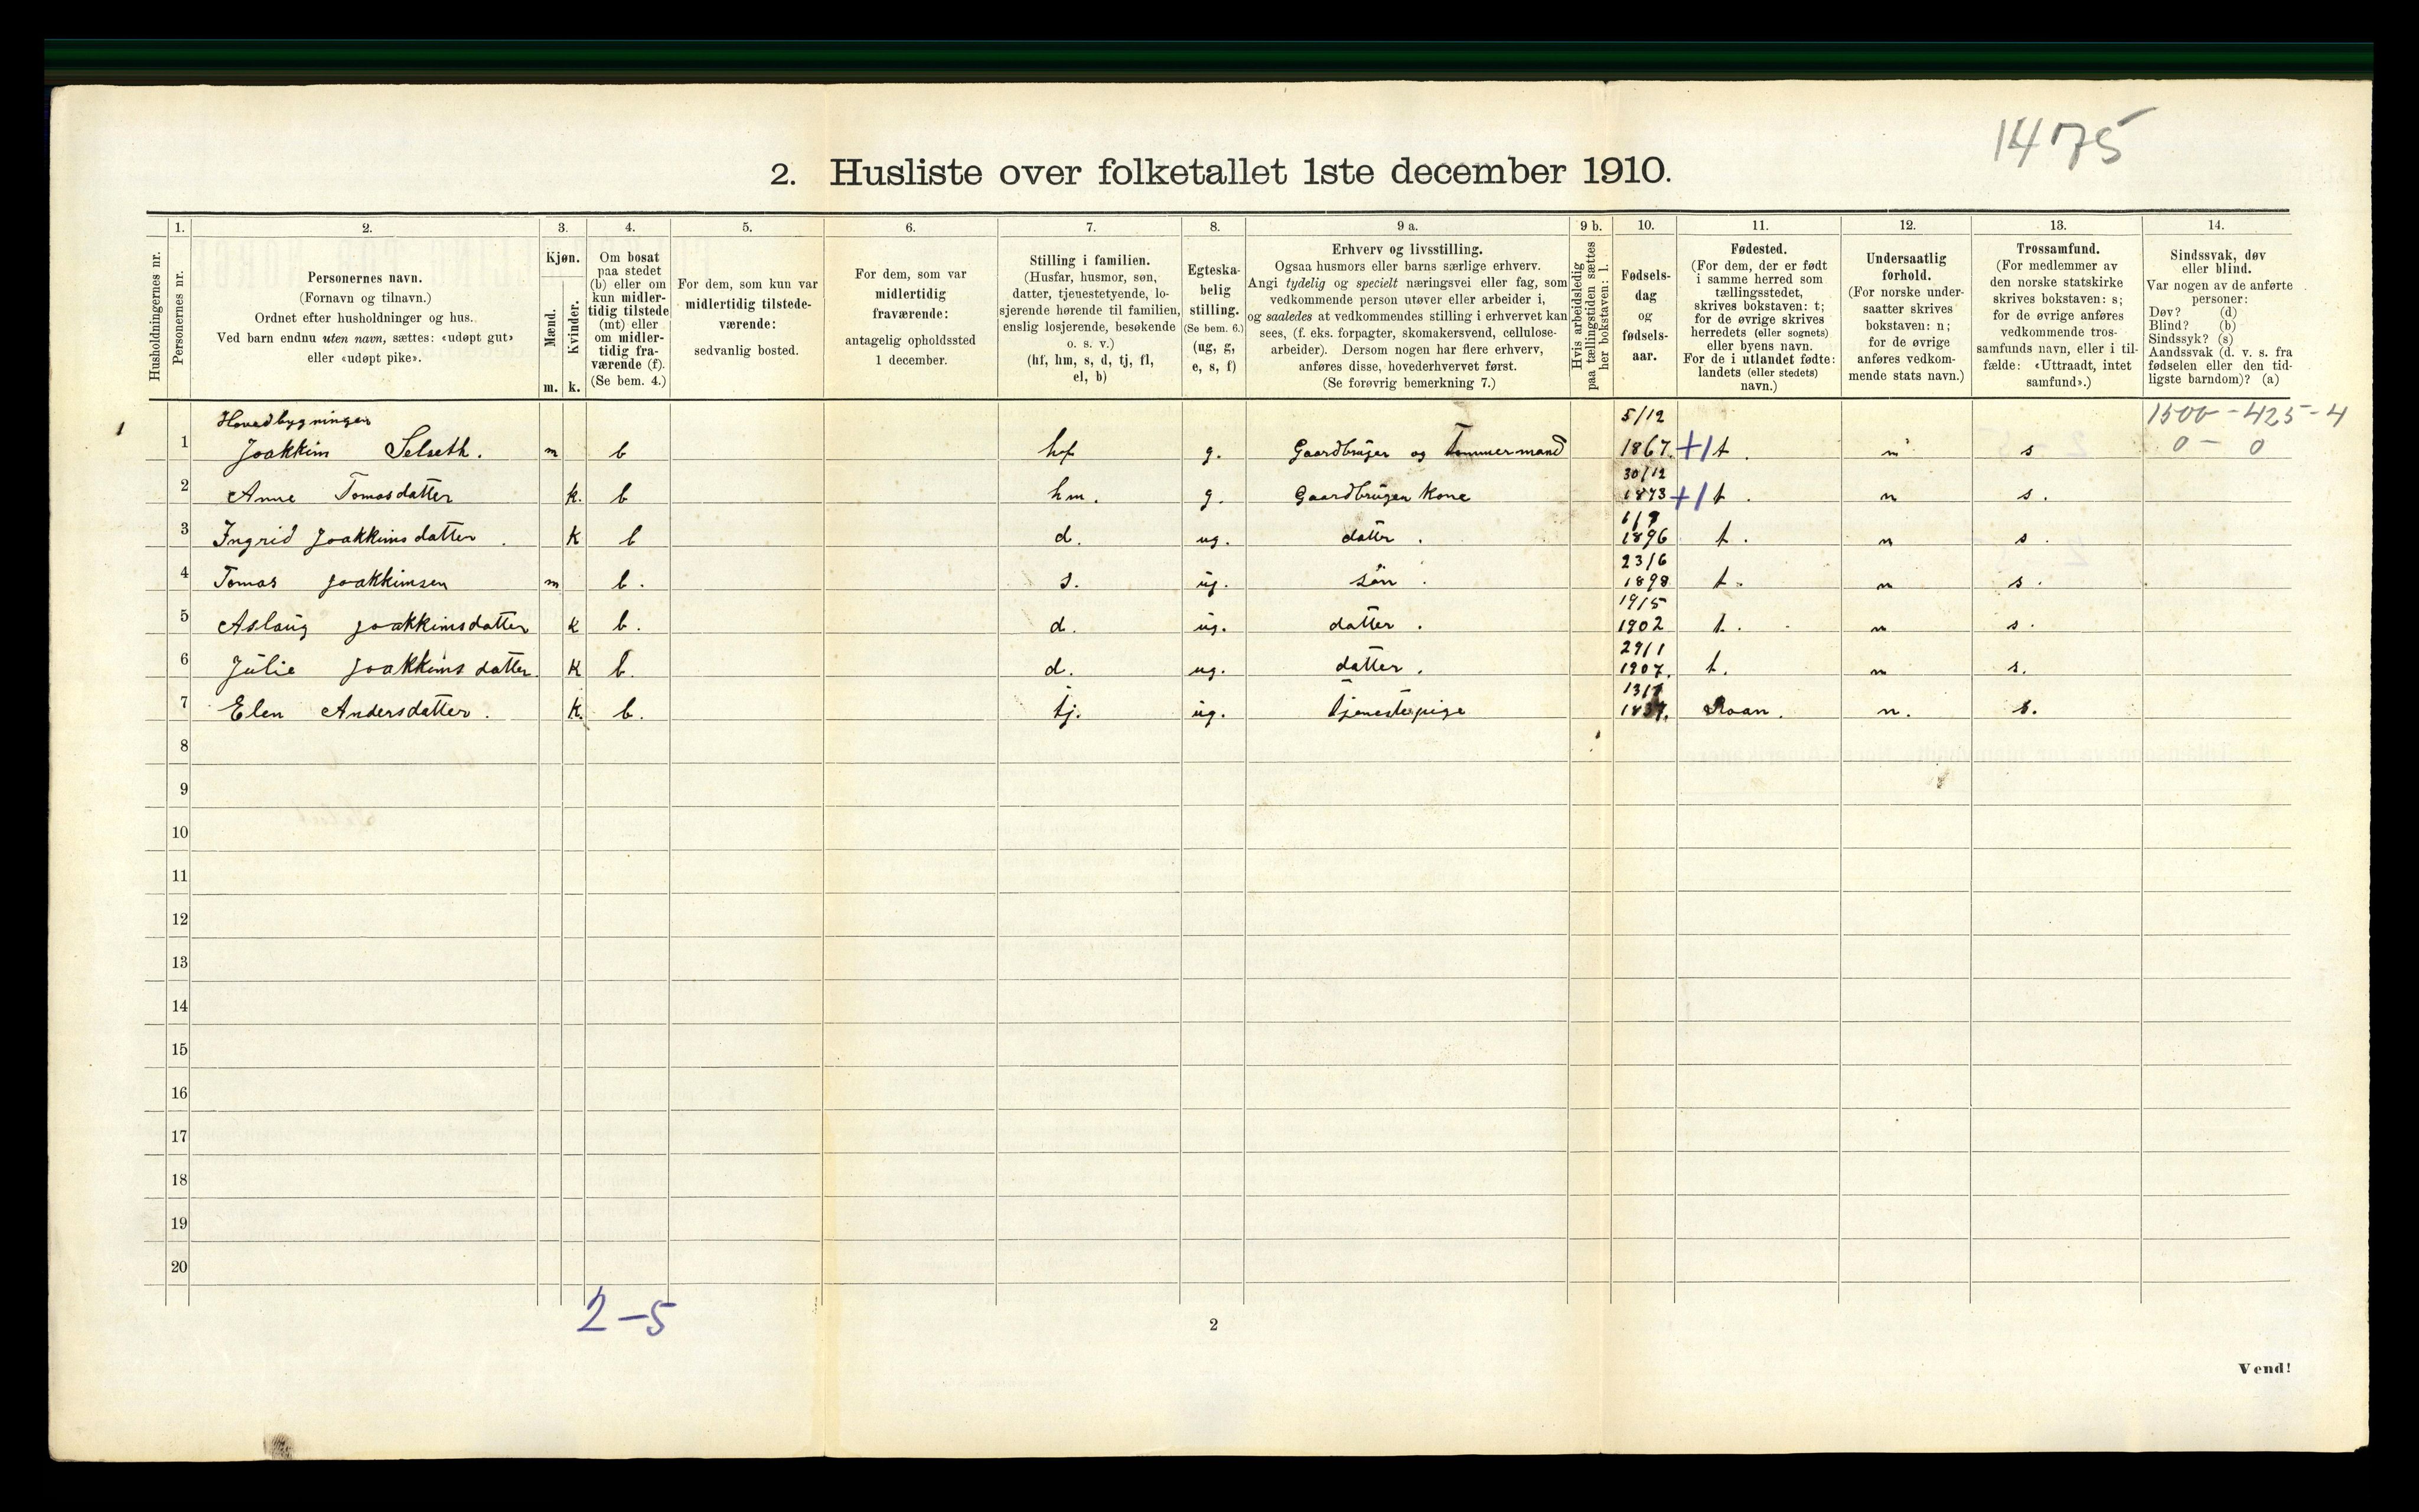 1475
2. Husliste over folketallet 1ste december 1910.
Husholdningernes nr.
1.
Personernes nr.
2.
Personernes navn.
(Fornavn og tilnavn.)
Ordnet efter husholdninger og hus.
Ved barn endnu uten navn, sættes: «udøpt gut»
eller «udøpt pike».
3.
Kjøn.
Mænd.
m.
Kvinder.
k.
4.
Om bosat
paa stedet
(b) eller om
kun midler-
tidig tilstede
(mt) eller
om midler-
tidig fra-
værende (f).
(Se bem. 4.)
5.
For dem, som kun var
midlertidig tilstede-
værende:
sedvanlig bosted.
6.
For dem, som var
midlertidig
fraværende:
antagelig opholdssted
1 december.
7.
Stilling i familien.
(Husfar, husmor, søn,
datter, tjenestetyende, lo-
sjerende hørende til familien,
enslig losjerende, besøkende
o. s. v.)
(hf, hm, s, d, tj, fl,
el, b)
8.
Egteska-
belig
stilling.
(Se bem. 6.)
(ug, g,
e, s, f)
9 a.
Erhverv og livsstilling.
Ogsaa husmors eller barns særlige erhverv.
Angi tydelig og specielt næringsvei eller fag, som
vedkommende person utøver eller arbeider i,
og saaledes at vedkommendes stilling i erhvervet kan
sees, (f. eks. forpagter, skomakersvend, cellulose-
arbeider). Dersom nogen har flere erhverv,
anføres disse, hovederhvervet først.
(Se forøvrig bemerkning 7.)
9 b.
Hvis arbeidsledig
paa tællingstiden sættes
her bokstaven: l.
10.
Fødsels-
dag
og
fødsels-
aar.
11.
Fødested.
(For dem, der er født
i samme herred som
tællingsstedet,
skrives bokstaven: t;
for de øvrige skrives
herredets (eller sognets)
eller byens navn.
For de i utlandet fødte:
landets (eller stedets)
navn.)
12.
Undersaatlig
forhold.
(For norske under-
saatter skrives
bokstaven: n;
for de øvrige
anføres vedkom-
mende stats navn.)
13.
Trossamfund.
(For medlemmer av
den norske statskirke
skrives bokstaven: s;
for de øvrige anføres
vedkommende tros-
samfunds navn, eller i til-
fælde: «Uttraadt, intet
samfund».)
14.
Sindssvak, døv
eller blind.
Var nogen av de anførte
personer:
Døv? (d)
Blind? (b)
Sindssyk? (s)
Aandssvak (d. v. s. fra
fødselen eller den tid-
ligste barndom)? (a)
Hovedbygningen 5/12 1500 - 425 - 4
1 1 Joakkim Selseth. m b hf g. Gaardbruger og Tømmermand 1867. +1 t. n s 0 - 0
30/12
2 Anne Tomasdatter k. b hm. g. Gaardbrugen Kone 1873 +1 t. n s.
3 Ingrid Joakkimsdatter. K b d. ug. datter. 1896 t. n s.
23/6
4 Tomas Joakkimsen m b. s. ug. søn. 1898 t. n s.
19/5
5 Aslaug Joakkimsdatter k b. d. ug. datter. 1902 t. n s.
29/1
6 Julie Joakkimsdatter. K b. d. ug. datter. 1907. t. n s.
7 Elen Andersdatter. K. b. tj. ug. Tjenestepige Roan. n. s.
8
9
10
11
12
13
14
15
16
17
18
19
20
2-5
2
Vend!